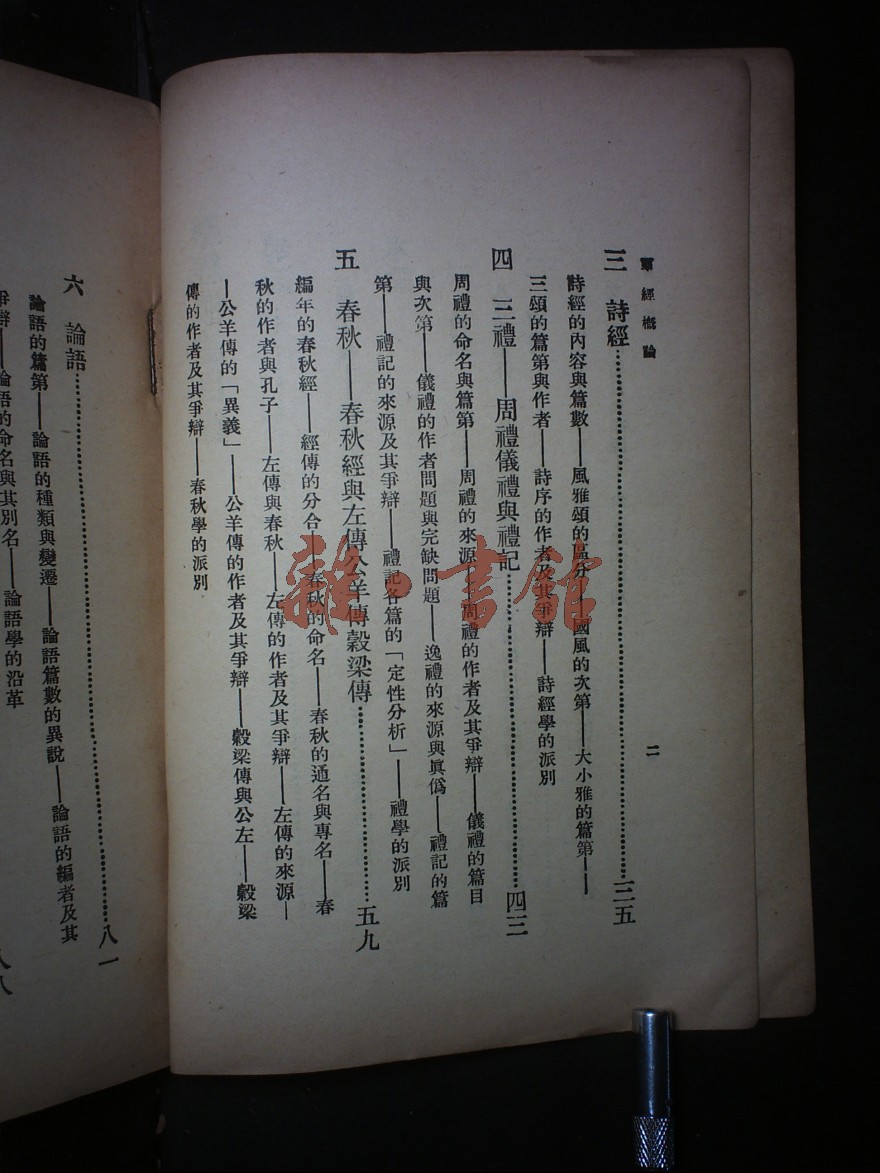 羣經概論
二
三　詩經……………………三五
詩經的內容與篇數——風雅頌的區分——國風的次第——大小雅的篇第——
三頌的篇第與作者——詩序的作者及其爭辯——詩經學的派別
四　三禮——周禮儀禮與禮記……………………四三
周禮的命名與篇第——周禮的來源——周禮的作者及其爭辯——儀禮的篇目
與次第——儀禮的作者問題與完缺問題——逸禮的來源與眞僞——禮記的篇
第——禮記的來源及其爭辯——禮記各篇的「定性分析」——禮學的派別
五　春秋——春秋經與左傳公羊傳穀梁傳……………………五九
編年的春秋經——經傳的分合——春秋的命名——春秋的通名與專名——春
秋的作者與孔子——左傳與春秋——左傳的作者及其爭辯——左傳的來源—
—公羊傳的「異義」——公羊傳的作者及其爭辯——穀梁傳與公左——穀梁
傳的作者及其爭辯——春秋學的派別
六　論語……………………八一
論語的篇第——論語的種類與變遷——論語篇數的異說——論語的編者及其
爭辯——論語的命名與其別名——論語學的沿革
八八
雜·書館